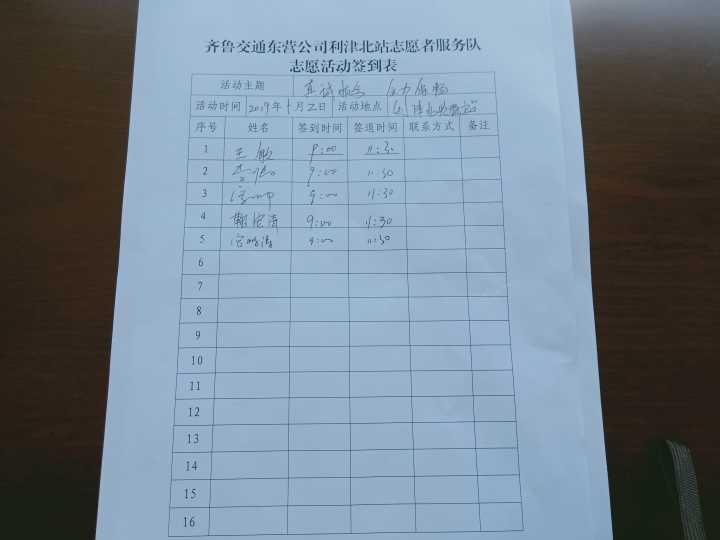 齐鲁交通东营公司利津北站志愿者服务队
志愿活动签到表
活动主题 真情 全力保畅
活动时间 2019年十月二日 活动地点 利津北收费站
序号 姓名 签到时间 签退时间 联系方式 备注
1 王敏 9:00 11:30
2 9:00 11:30
3 9:00 11:30
4 9:00 11:30
5 9:00 11:30
6
7
8
9
10
11
12
13
14
15
16